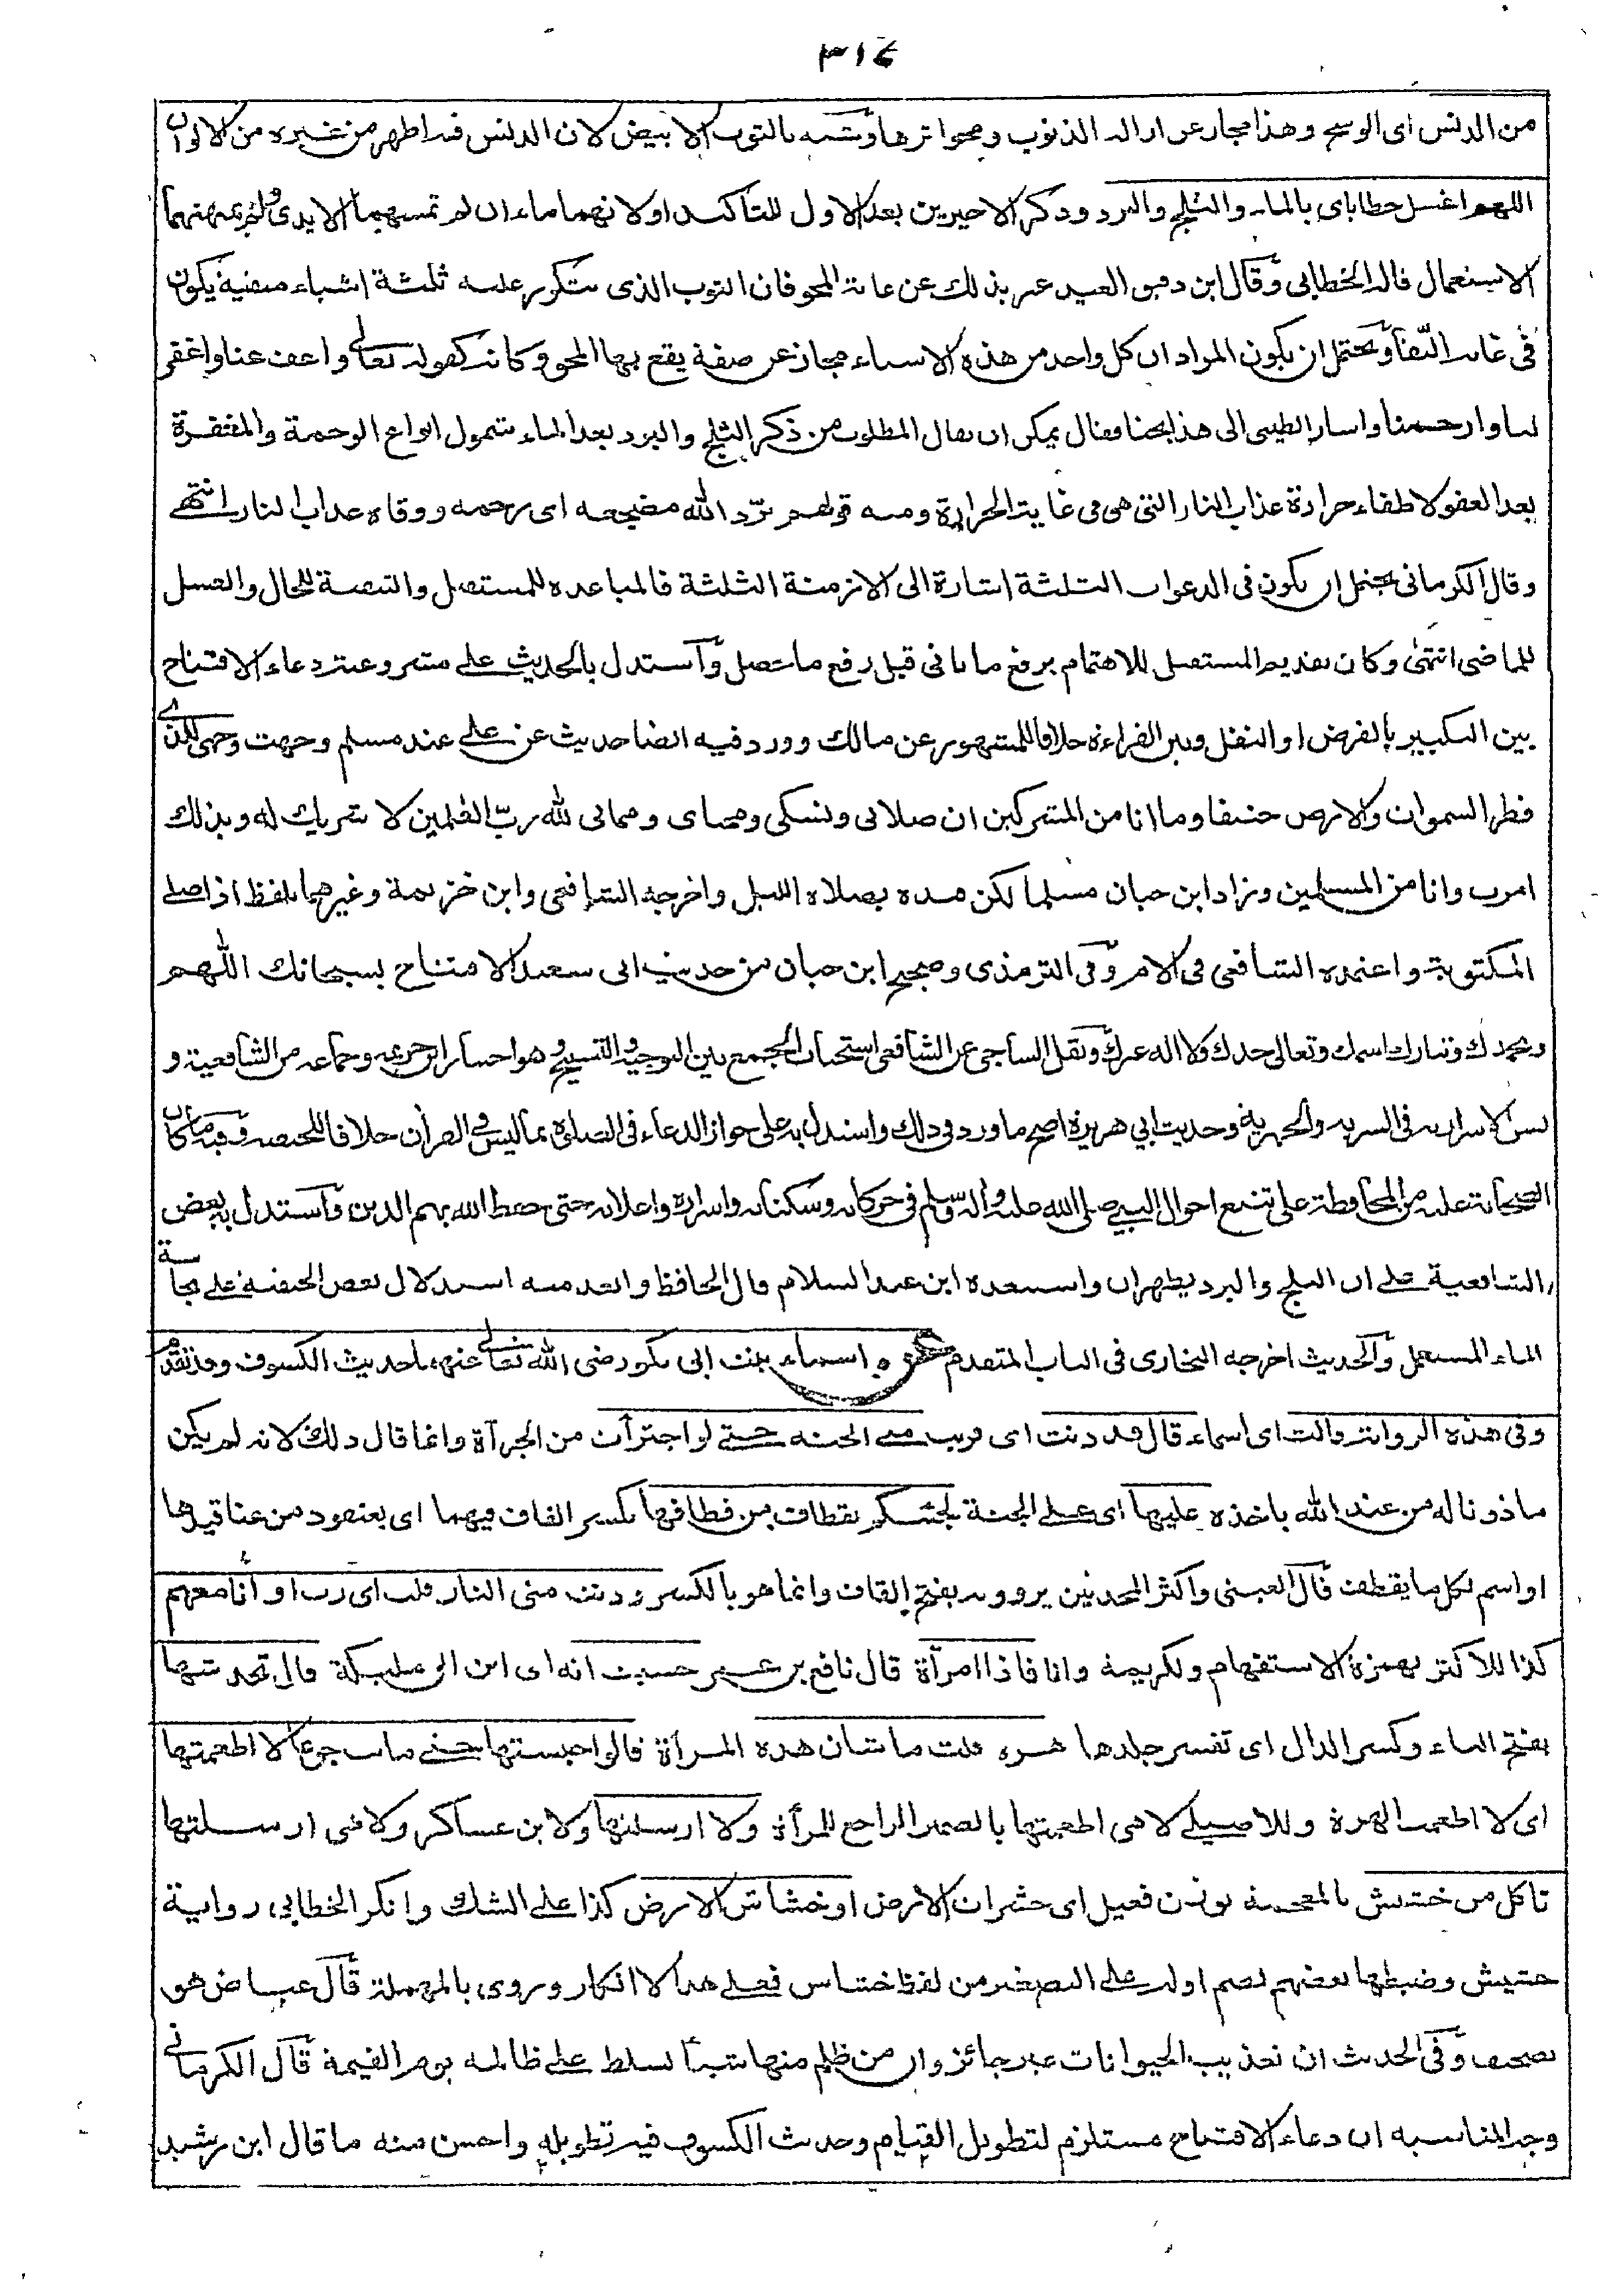 ٣١٤
من الدنس اى الوسخ وهذا مجاز عن ازالة الذنوب ومحو اثرها وشبه بالثوب الابيض لان الدنس فيه اظهر من غيره من الالوان
اللهم اغسل خطاياى بالماء والثلج والبرد وذكر الاخيرين بعد الاول للتاكيد او لانهما ماءان لم تمسهما الايدى ولم يمتهنهما
الاستعمال قاله الخطابى وقال ابن دقيق العيد عبر بذلك عن غاية المحو فان الثوب الذى يتكرر عليه ثلثة اشياء منقية يكون
فى غاية النقأ ويحتمل ان يكون المراد ان كل واحد من هذه الاشياء مجاز عن صفة يقع بها المحو وكانه كقوله تعالى واعف عنا واغفر
لنا وارحمنا واشار الطيبى الى هذا بحثا فقال يمكن ان يقال المطلوب من ذكر الثلج والبرد بعد الماء شمول انواع الرحمة والمغفرة
بعد العفو لاطفاء حرارة عذاب النار التى هى فى غاية الحرارة ومنه قولهم برّد الله مضجعه اى رحمه ووقاه عذاب النار انتهى
وقال الكرمانى يحتمل ان يكون فى الدعوات الثلثة اشارة الى الازمنة الثلثة فالمباعده للمستقبل والتنقية للحال والغسل
للماضى انتهى وكان تقديم المستقبل للاهتمام برفع ما ياتى قبل رفع ما حصل وآستدل بالحديث على مشروعية دعاء الافتتاح
بين التكبير بالفرض او النفل وبين القراءة خلافا للمشهور عن مالك وورد فيه ايضا حديث عن على عند مسلم وجهت وجهى للذى
فطر السموات والارض حنيفا وما انا من المشركين ان صلاتى ونسكى ومحياى ومماتى لله ربّ العلمين لا شريك له وبذلك
امرت وانا من المسلمين وزاد ابن حبان مسلما لكن قيده بصلاة الليل واخرجه الشافعى وابن خزيمة وغيرهما بلفظ اذا صلى
المكتوبة واعتمده الشافعى فى الام وفى الترمذى وصحيح ابن حبان من حديث ابى سعيد الافتتاح بسبحانك اللهم
وبحمدك وتبارك اسمك وتعالى جدك ولا اله غيرك ونقل الساجى عن الشافعى استحباب الجمع بين التوجيه والتسبيح وهو اختيار ابن خزيمة وجماعة من الشافعية و
يسن الاسرار به فى السرية والجهرية وحديث ابي هريرة اصح ما ورد فى ذلك واستدل به على جواز الدعاء فى الصلوة بما ليس فى القرآن خلافا للحنفية وفيه ما كان
الصحابة عليه من المحافظة على تتبع احوال النبى صلى الله عليه وآله وسلم فى حركاته وسكناته واسراره واعلانه حتى حفظ الله بهم الدين وآستدل به بعض
الشافعية على ان الثلج والبرد يطهران واستبعده ابن عبد السلام قال الحافظ وابعد منه استدلال بعض الحنفية على نجاسة
الماء المستعمل وآلحديث اخرجه البخارى فى الباب المتقدم عن اسماء بنت ابى بكر رضى الله تعالى عنهما حديث الكسوف وقد تقدم
وفى هذه الرواية قالت اى اسماء قال قد دنت اى قربت منى الجنه حتى لو اجترأت من الجرأة وانما قال ذلك لانه لم يكن
ماذونا له من عند الله باخذه عليها اى على الجنة لجئتكم بقطاف من قطافها بكسر القاف فيهما اى بعنقود من عناقيدها
او اسم لكل ما يقطف قال العينى واكثر المحدثين يروونه بفتح القاف وانما هو بالكسر ودنت منى النار قلت اى رب او أنا معهم
كذا للاكثر بهمزة الاستفهام ولكريمة وانا فاذا امرأة قال نافع بن عمر حسبت انه اى ابن ابى مليكة قال تخدشها
بفتح التاء وكسر الدال اى تقشر جلدها هرة قلت ما شان هذه المرأة قالوا حبستها حتى ماتت جوعا لا اطعمتها
اى لا اطعمت الهرة وللاصيلى لا هى اطعمتها بالضمير الراجع للمرأة ولا ارسلتها ولابن عساكر ولا هى ارسلتها
تاكل من خشيش بالمعجمة بوزن فعيل اى حشرات الارض او خشاش الارض كذا على الشك وانكر الخطابى رواية
خشيش وضبطها بعضهم بضم اوله على التصغير من لفظ خشاش فعلى هذا لا انكار وروى بالمهملة قال عياض هو
تصحيف وفى الحديث ان تعذيب الحيوانات غير جائز وان من ظلم منها شيأ يسلط على ظالمه يوم القيمة قال الكرمانى
وجه المناسبه ان دعاء الافتتاح مستلزم لتطويل القيام وحديث الكسوف فيه تطويله واحسن منه ما قال ابن رشيد